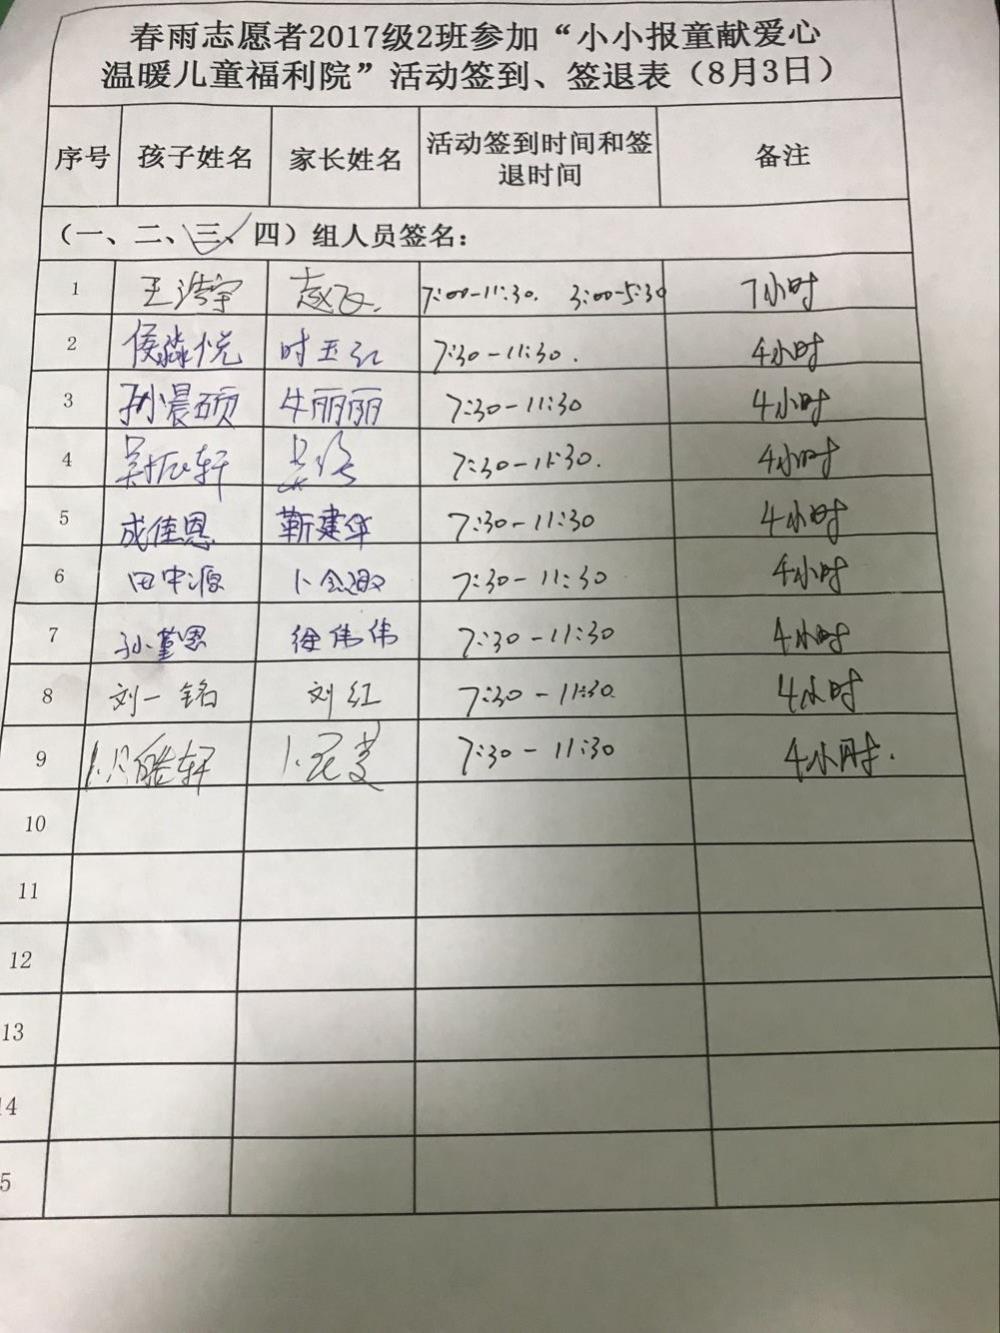 春雨志愿者2017级2班参加“小小报童献爱心
温暖儿童福利院”活动签到、签退表（8月3日）
序号 孩子姓名 家长姓名 活动签到时间和签退时间 备注
（一、二、三、四）组人员签名：
1 王浩宇 赵飞. 7:00-11:30. 3:00-5:30 7小时
2 侯淼悦 时玉红 7:30-11:30. 4小时
3 孙晨硕 牛丽丽 7:30-11:30 4小时
4 吴振轩 7:30-11:30. 4小时
5 成佳恩 靳建华 7:30-11:30 4小时
6 田中源 卜会敏 7:30-11:30 4小时
7 孙堇恩 徐伟伟 7:30-11:30 4小时
8 刘一铭 刘红 7:30-11:30. 4小时
9 7:30-11:30 4小时.
10
11
12
13
14
5